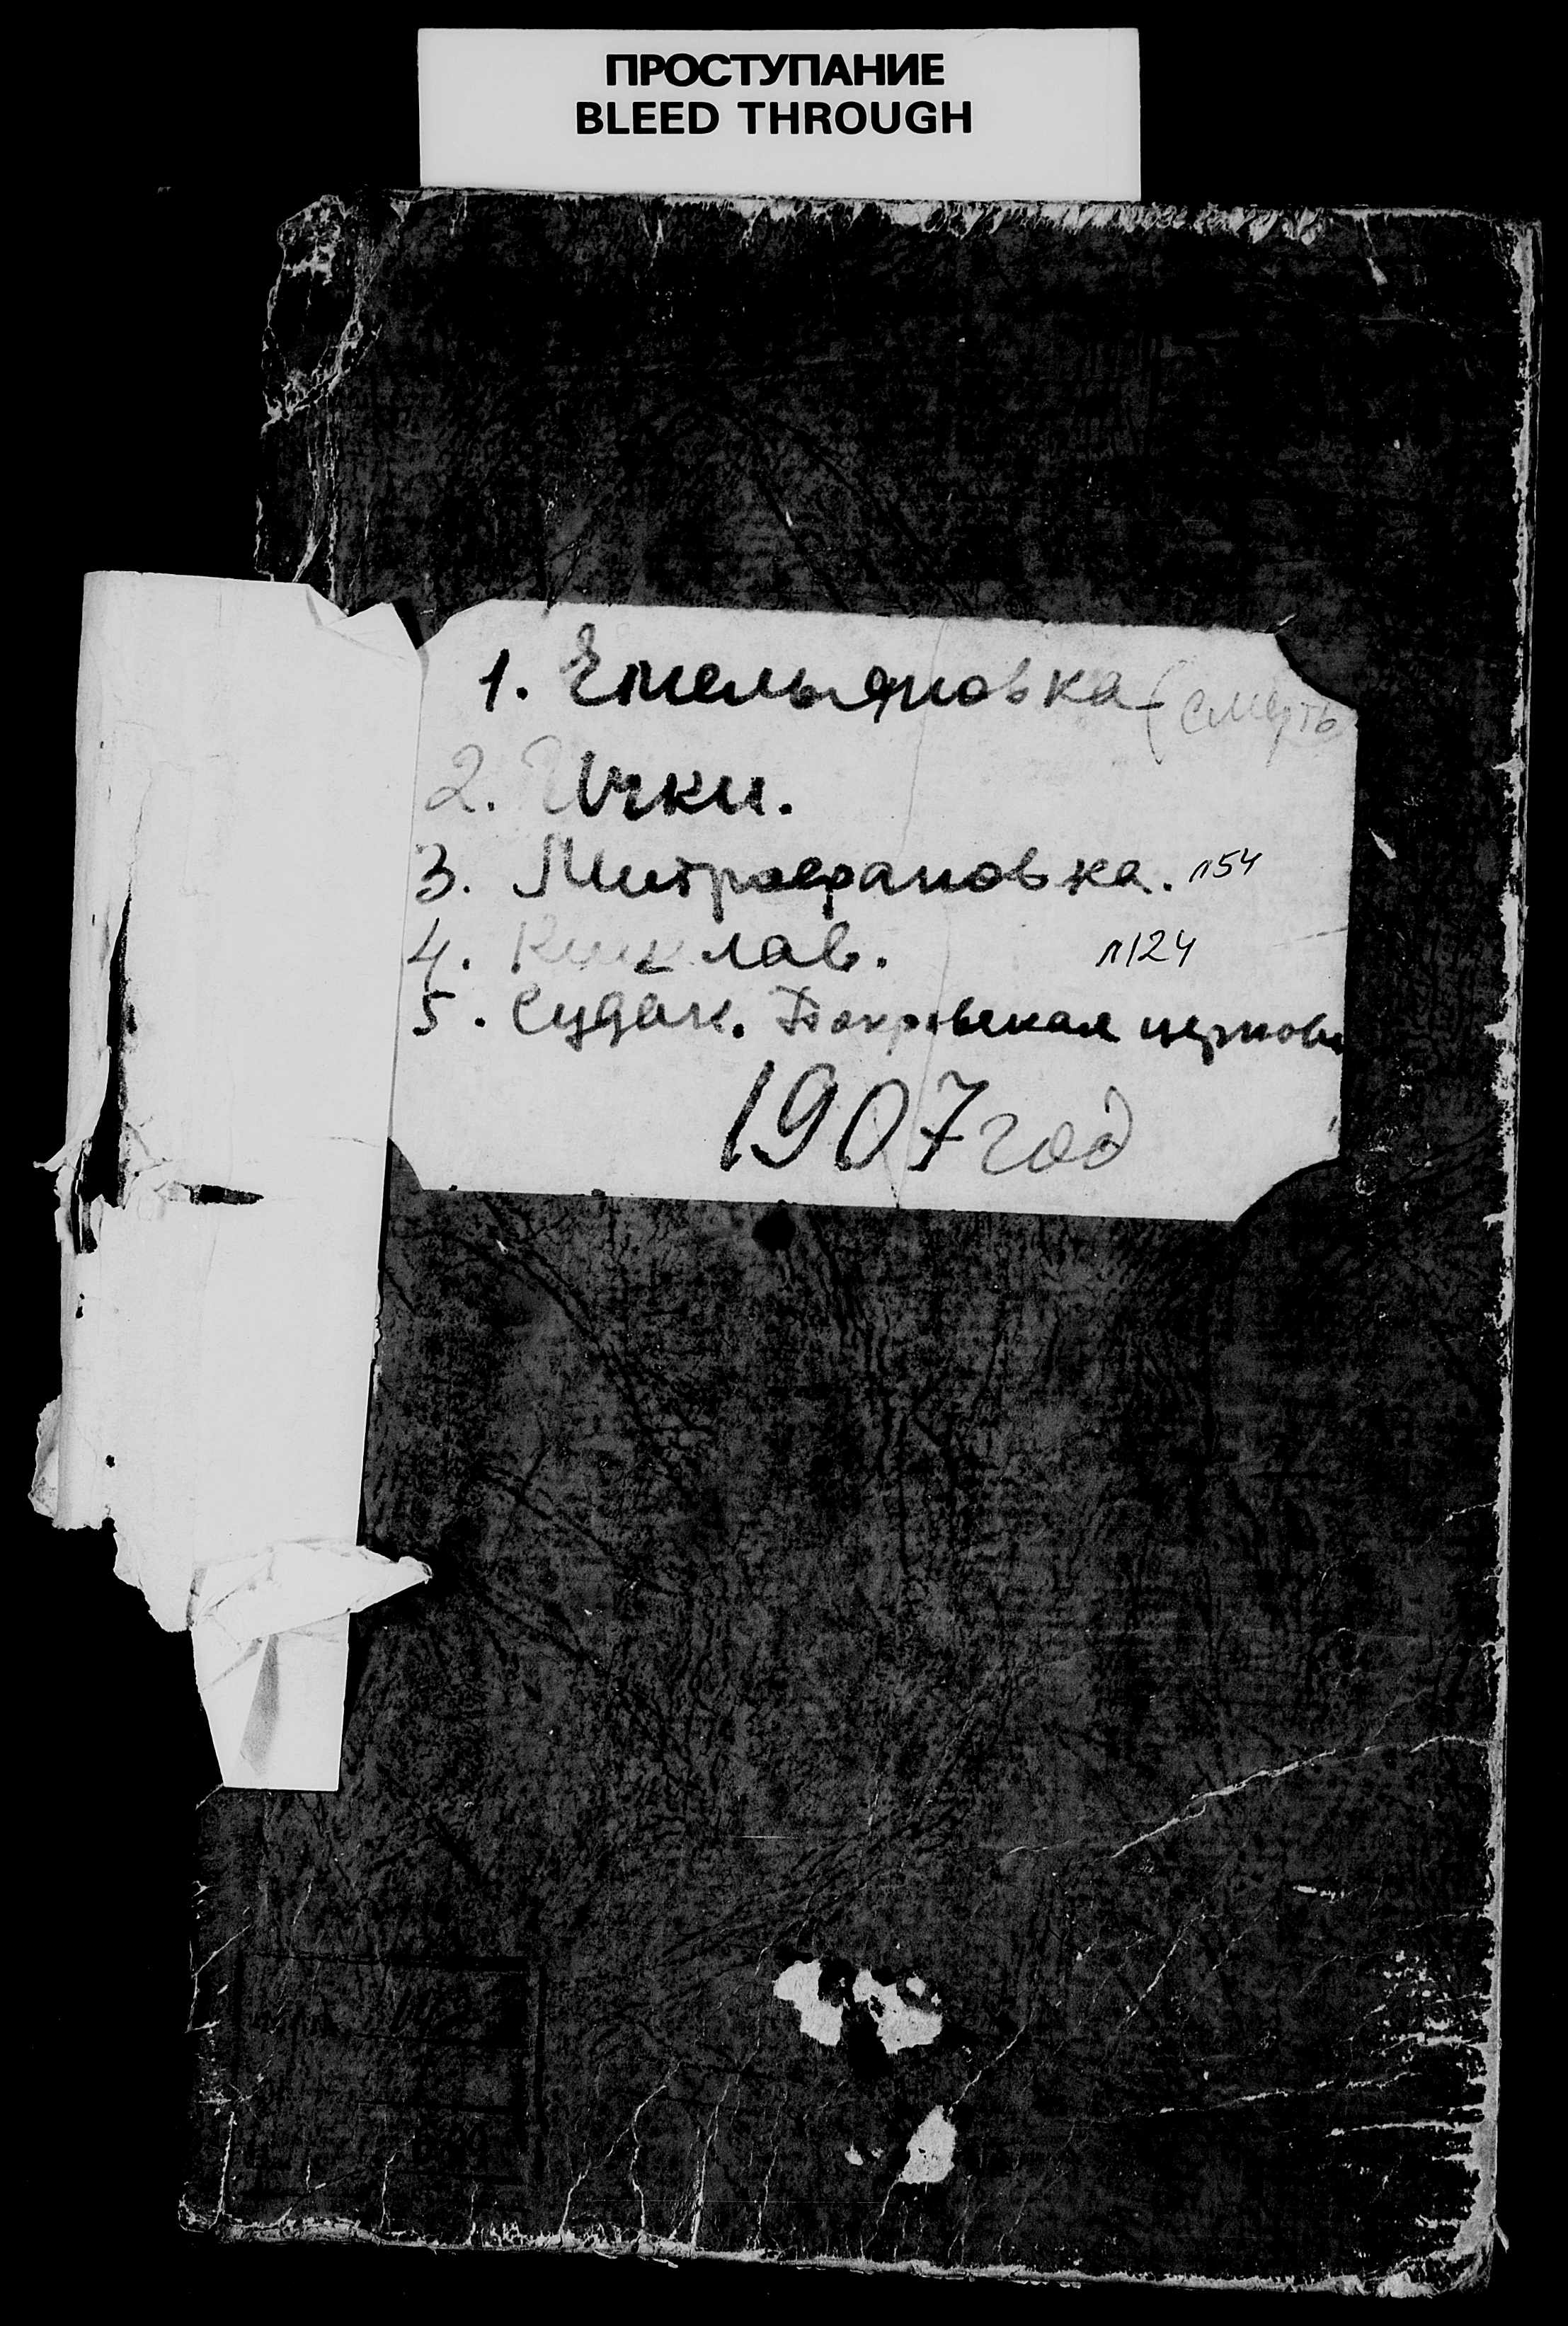 ПРОСТУПАНИЕ
BLEED THROUGH
1. Емельяновка (смерть
2. Ички.
3. Митрофановка. л54
4. Кишлав. л124
5. Судак. Покровская церковь
1907 год